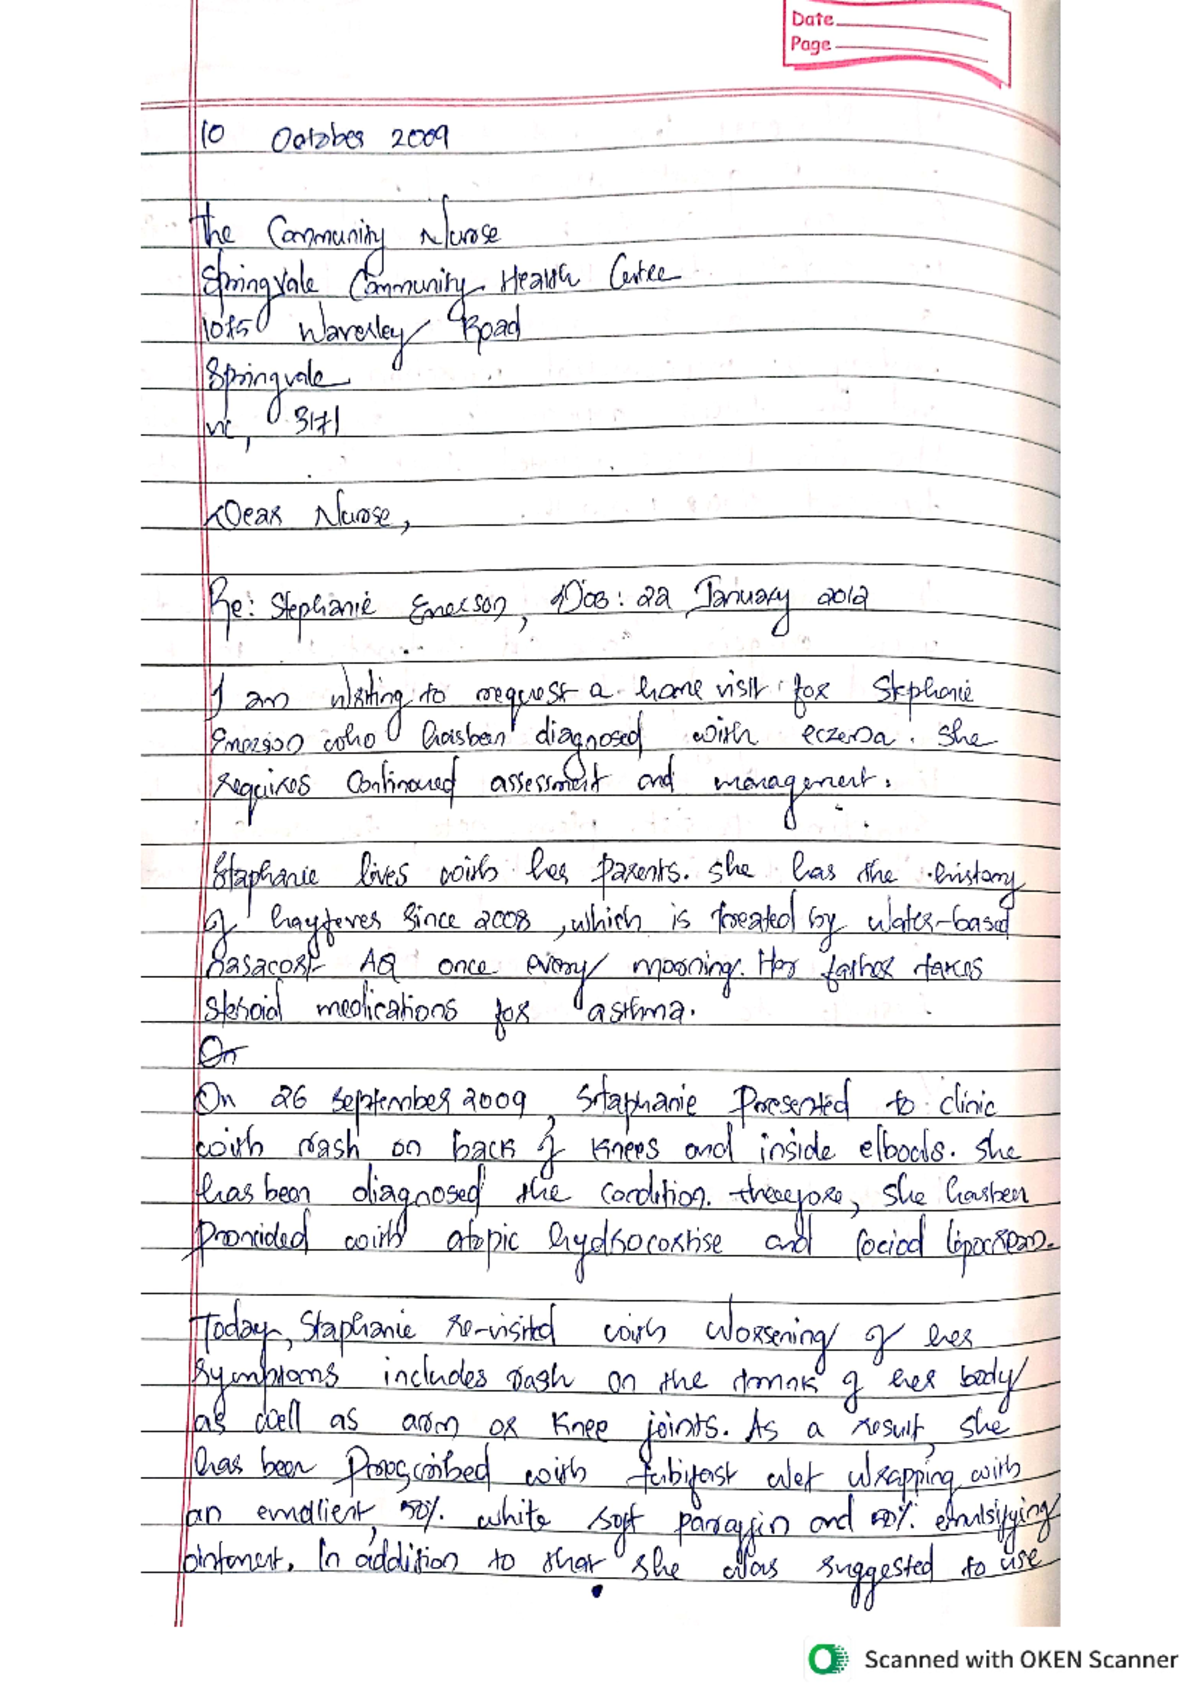 Date
Page
10 October 2009
The Community Nurse
Springvale Community Health Centre
1085 Waverley Road
Springvale
Vic, 3171
Dear Nurse,
Re: Stephanie Emerson, DOB: 22 January 2012
I am writing to request a home visit for Stephanie
Emerson who hasbeen diagnosed with eczema. She
requires Continoued assessment and management.
Staphanie lives with her parents. She has the history
of hayfever since 2008, which is treated by water-based
nasacort AQ once every morning. Her father takes
steroid medications for asthma.
On
On 26 September 2009, Staphanie Presented to clinic
with rash on back of knees and inside elbows. She
has been diagnosed the condition. therefore, she hasbeen
provided with atopic hydrocortise and
Today, Staphanie re-visited with worsening of her
symptoms includes rash on the trunk of her body
as well as arm or knee joints. As a result, she
has been Prescribed with tubifast wet wrapping with
an emollient, 50% white soft paraffin and 50% emulsifying
ointment. In addition to that she was suggested to use
Scanned with OKEN Scanner